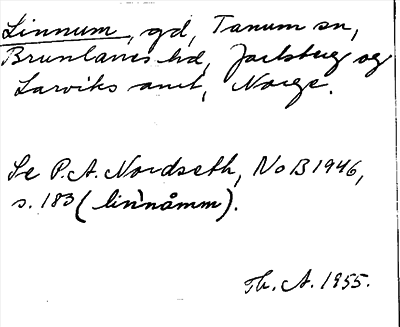 Linnum, gd, Tanum sn,
Brunlanes hd, Jarlsberg og
Larviks amt, Norge.
Se P.A. Nordseth, NoB 1946,
s. 183 (lin`nåmm).
Th. A. 1955.